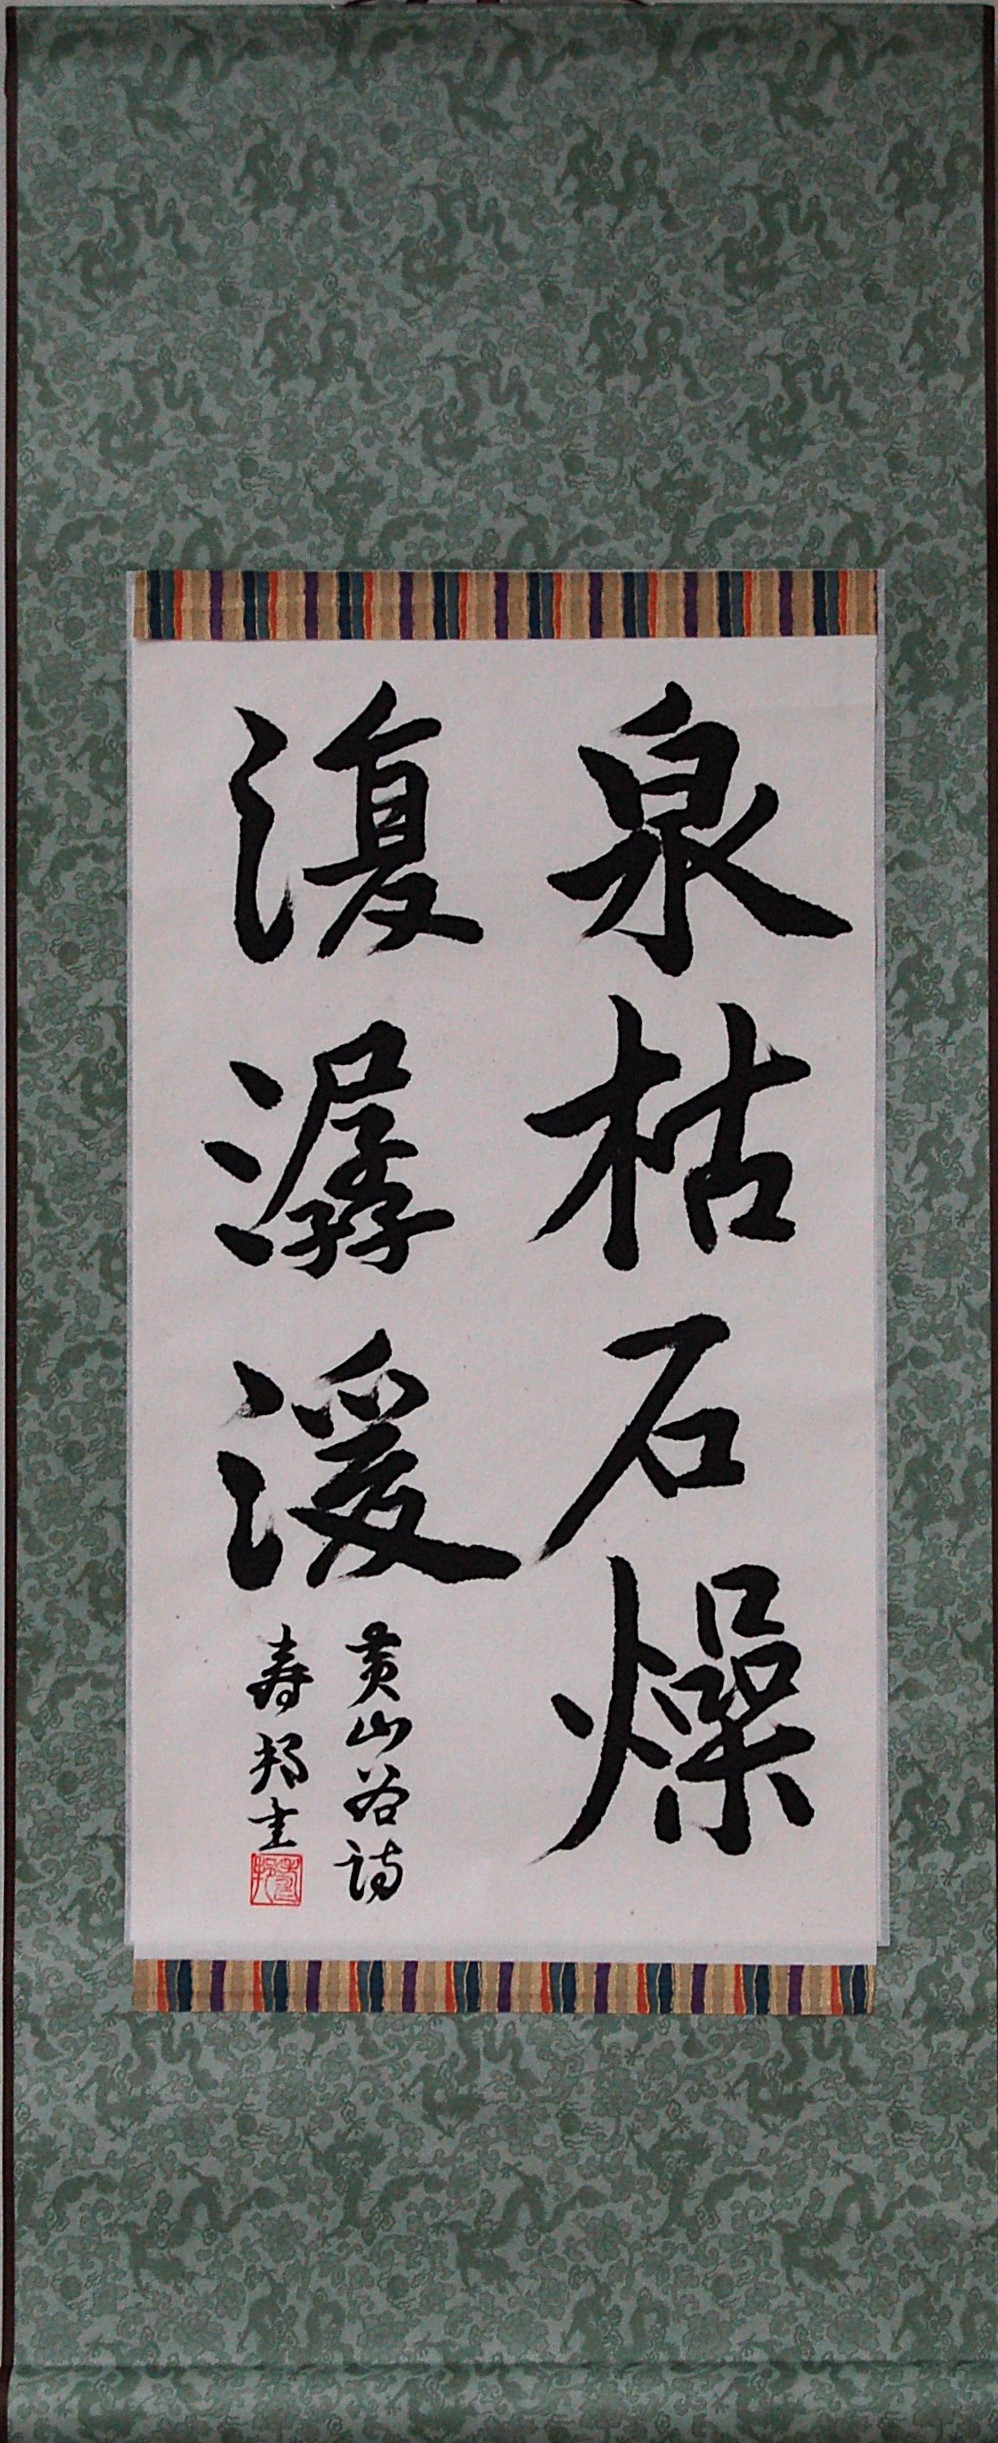 泉枯石燥
復潺湲
黄山谷詩
寿邦書
寿邦